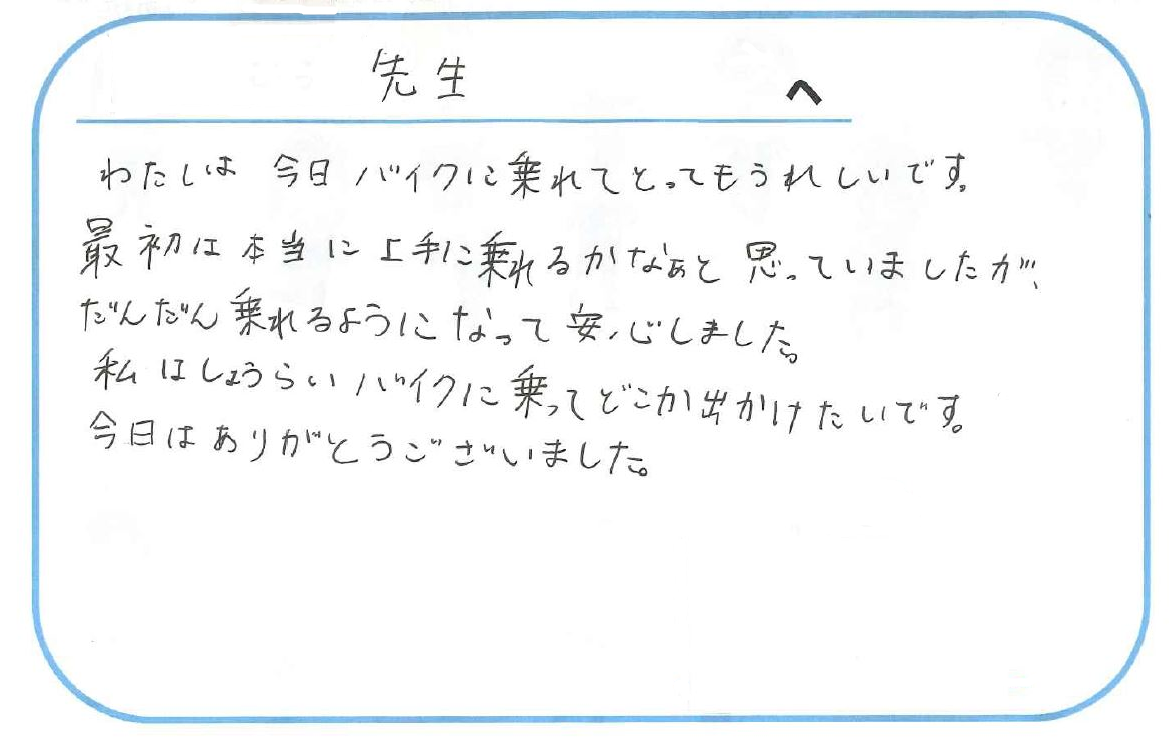 先生 へ
わたしは 今日 バイクに乗れてとってもうれしいです。
最初は本当に上手に乗れるかなぁと 思っていましたが、
だんだん乗れるようになって安心しました。
私はしょうらいバイクに乗ってどこか出かけたいです。
今日はありがとうございました。